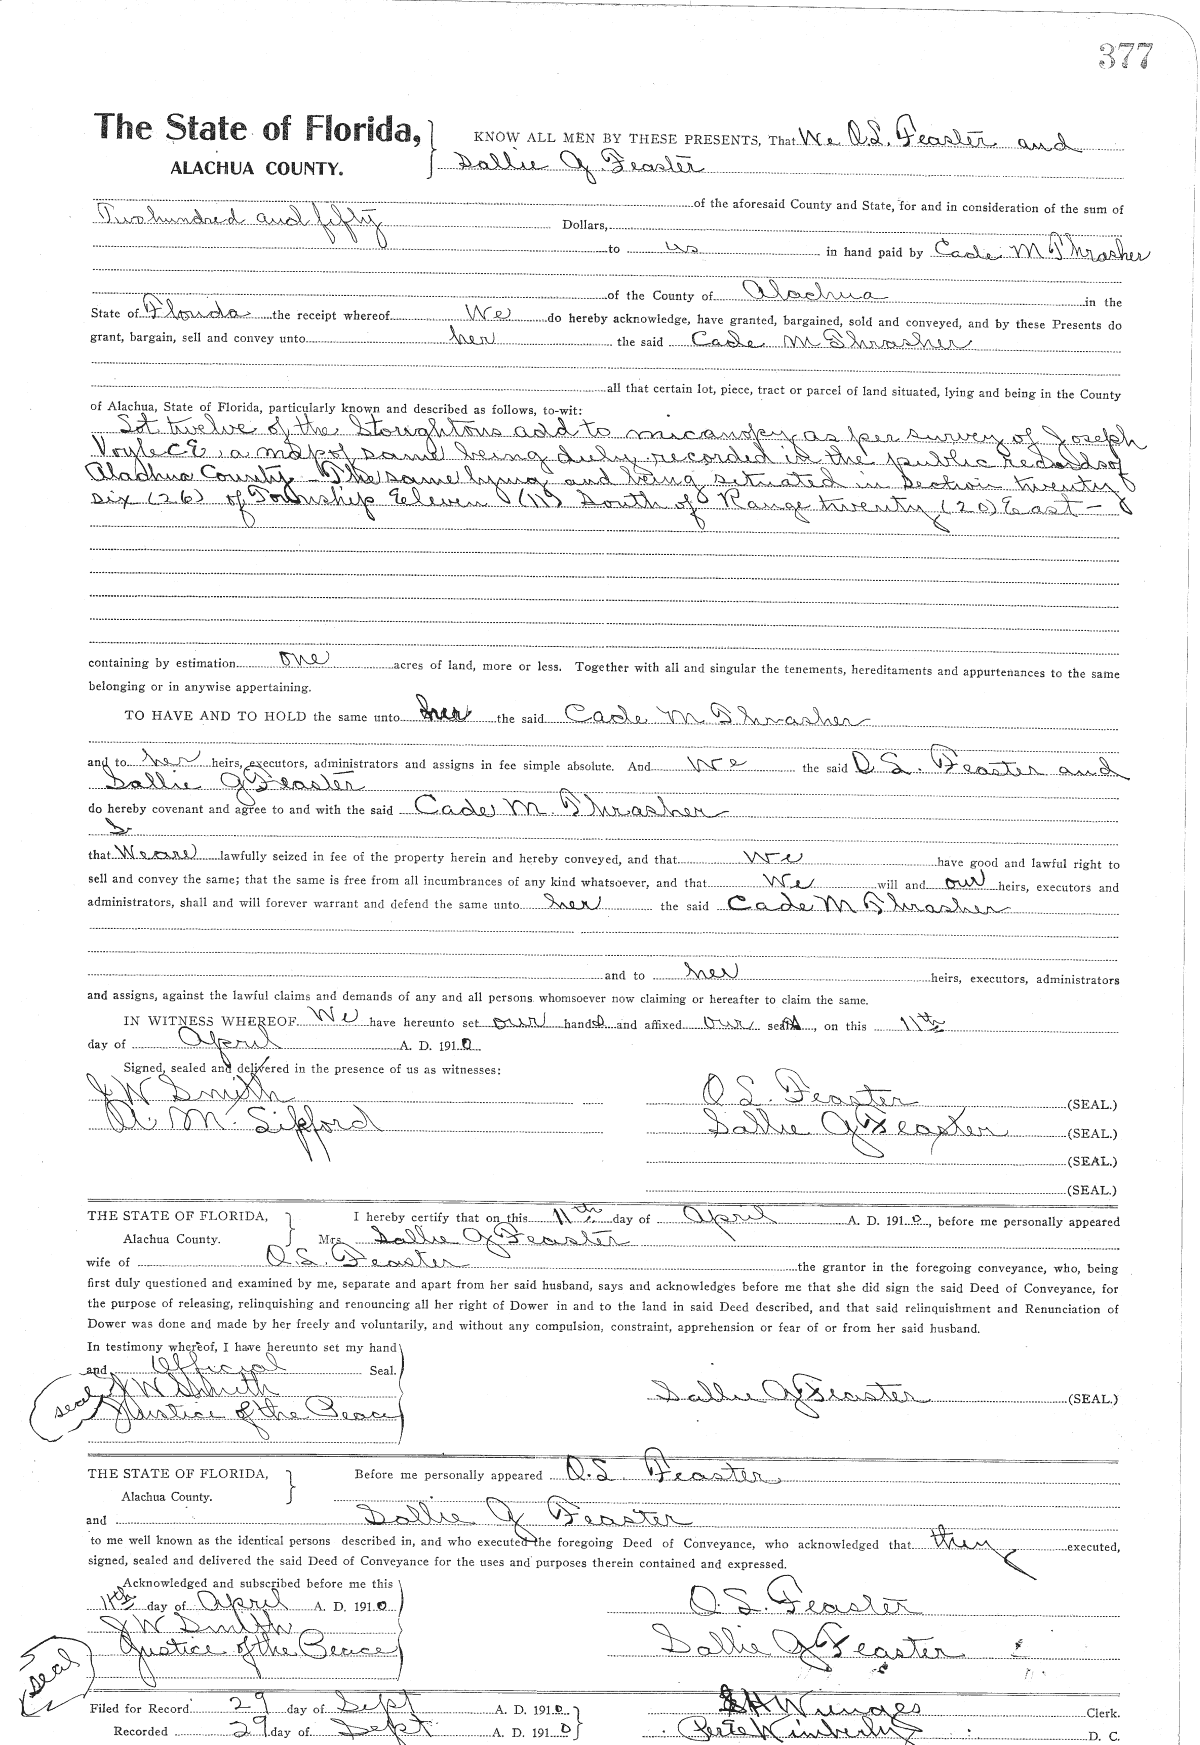 377
The State of Florida, KNOW ALL MEN BY THESE PRESENTS, That We O.S. Feaster and
ALACHUA COUNTY. Sallie G. Feaster
of the aforesaid County and State, for and in consideration of the sum of
Two hundred and fifty Dollars,
to us in hand paid by Cade M Thrasher
of the County of Alachua in the
State of Florida the receipt whereof We do hereby acknowledge, have granted, bargained, sold and conveyed, and by these Presents do
grant, bargain, sell and convey unto her the said Cade M Thrasher
all that certain lot, piece, tract or parcel of land situated, lying and being in the County
of Alachua, State of Florida, particularly known and described as follows, to-wit:
Lot twelve of the Stoughtons add to micanopy as per survey of Joseph
Voyle C E, a map of same being duly recorded in the public records of
Alachua County - The same lying and being situated in Section twenty
six (26) of Township Eleven (11) South of Range twenty (20) East -
containing by estimation one acres of land, more or less. Together with all and singular the tenements, hereditaments and appurtenances to the same
belonging or in anywise appertaining.
TO HAVE AND TO HOLD the same unto her the said Cade M Thrasher
and to her heirs, executors, administrators and assigns in fee simple absolute. And We the said O S. Feaster and
Sallie G Feaster
do hereby covenant and agree to and with the said Cade M. Thrasher
that We are lawfully seized in fee of the property herein and hereby conveyed, and that We have good and lawful right to
sell and convey the same; that the same is free from all incumbrances of any kind whatsoever, and that We will and our heirs, executors and
administrators, shall and will forever warrant and defend the same unto her the said Cade M Thrasher
and to her heirs, executors, administrators
and assigns, against the lawful claims and demands of any and all persons whomsoever now claiming or hereafter to claim the same.
IN WITNESS WHEREOF We have hereunto set our hands and affixed our seals, on this 11th
day of April A. D. 1910
Signed, sealed and delivered in the presence of us as witnesses:
J W Smith O S. Feaster (SEAL.)
A. M. Sifford Sallie G Feaster (SEAL.)
(SEAL.)
(SEAL.)
THE STATE OF FLORIDA, I hereby certify that on this 11th day of April A. D. 1910, before me personally appeared
Alachua County. Mrs. Sallie G Feaster
wife of O.S. Feaster the grantor in the foregoing conveyance, who, being
first duly questioned and examined by me, separate and apart from her said husband, says and acknowledges before me that she did sign the said Deed of Conveyance, for
the purpose of releasing, relinquishing and renouncing all her right of Dower in and to the land in said Deed described, and that said relinquishment and Renunciation of
Dower was done and made by her freely and voluntarily, and without any compulsion, constraint, apprehension or fear of or from her said husband.
In testimony whereof, I have hereunto set my hand
and Official Seal.
seal J W Smith Sallie G Feaster (SEAL.)
Justice of the Peace
THE STATE OF FLORIDA, Before me personally appeared O.S. Feaster
Alachua County.
and Sallie G Feaster
to me well known as the identical persons described in, and who executed the foregoing Deed of Conveyance, who acknowledged that they executed,
signed, sealed and delivered the said Deed of Conveyance for the uses and purposes therein contained and expressed.
Acknowledged and subscribed before me this
11th day of April A. D. 1910 O.S. Feaster
J W Smith
Justice of the Peace Sallie G Feaster
seal
Filed for Record 29 day of Sept A. D. 1910 S H Wienges Clerk.
Recorded 29 day of Sept A. D. 1910 Kimberly D. C.